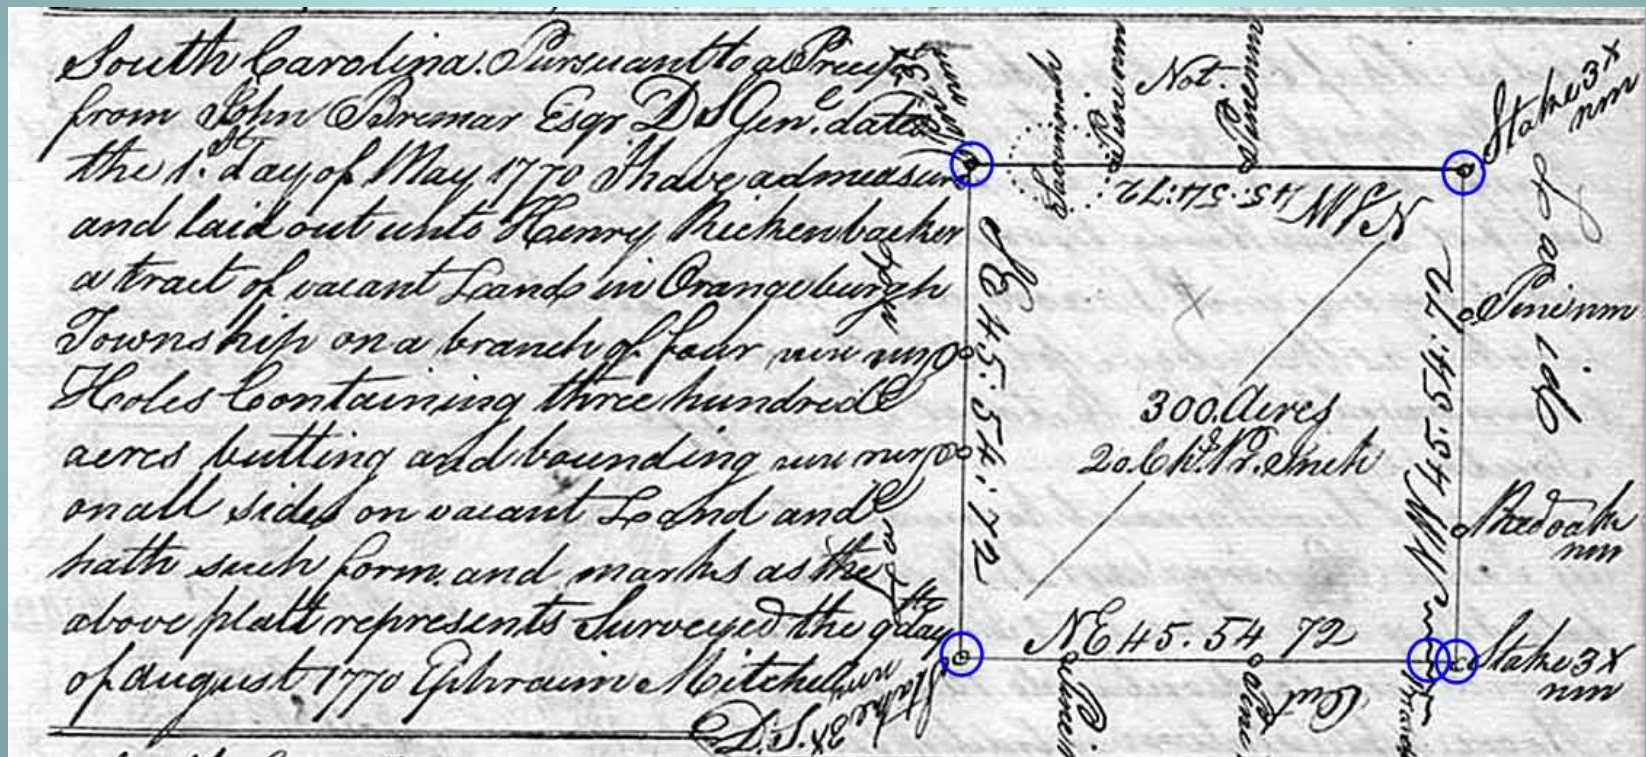 South Carolina. Pursuant to a Precept
from John Bremar Esqr D S Gen.l dated
the 1.st day of May 1770 I have admeasur
and laid out unto Henry Rickenbacker
a tract of vacant Land in Orangeburgh
Township on a branch of four
Holes Containing three hundred
acres butting and bounding
on all sides on vacant Land and
hath such form and marks as the
above platt represents Surveyed the 9th day
of august 1770 Ephraim Mitchell
D.S.
Savannah
Pine nm
Not.
Pine nm
Stake 3X
nm
NW 45:54:72
SE 45:54:72
NW 45:54:72
NE 45.54 72
300 Acres
20 Ch.s Pr. Inch
Laid
Pine nm
Red oak
nm
Stake 3X
nm
Stake 3X
nm
Pine
Pine
Out
Branch